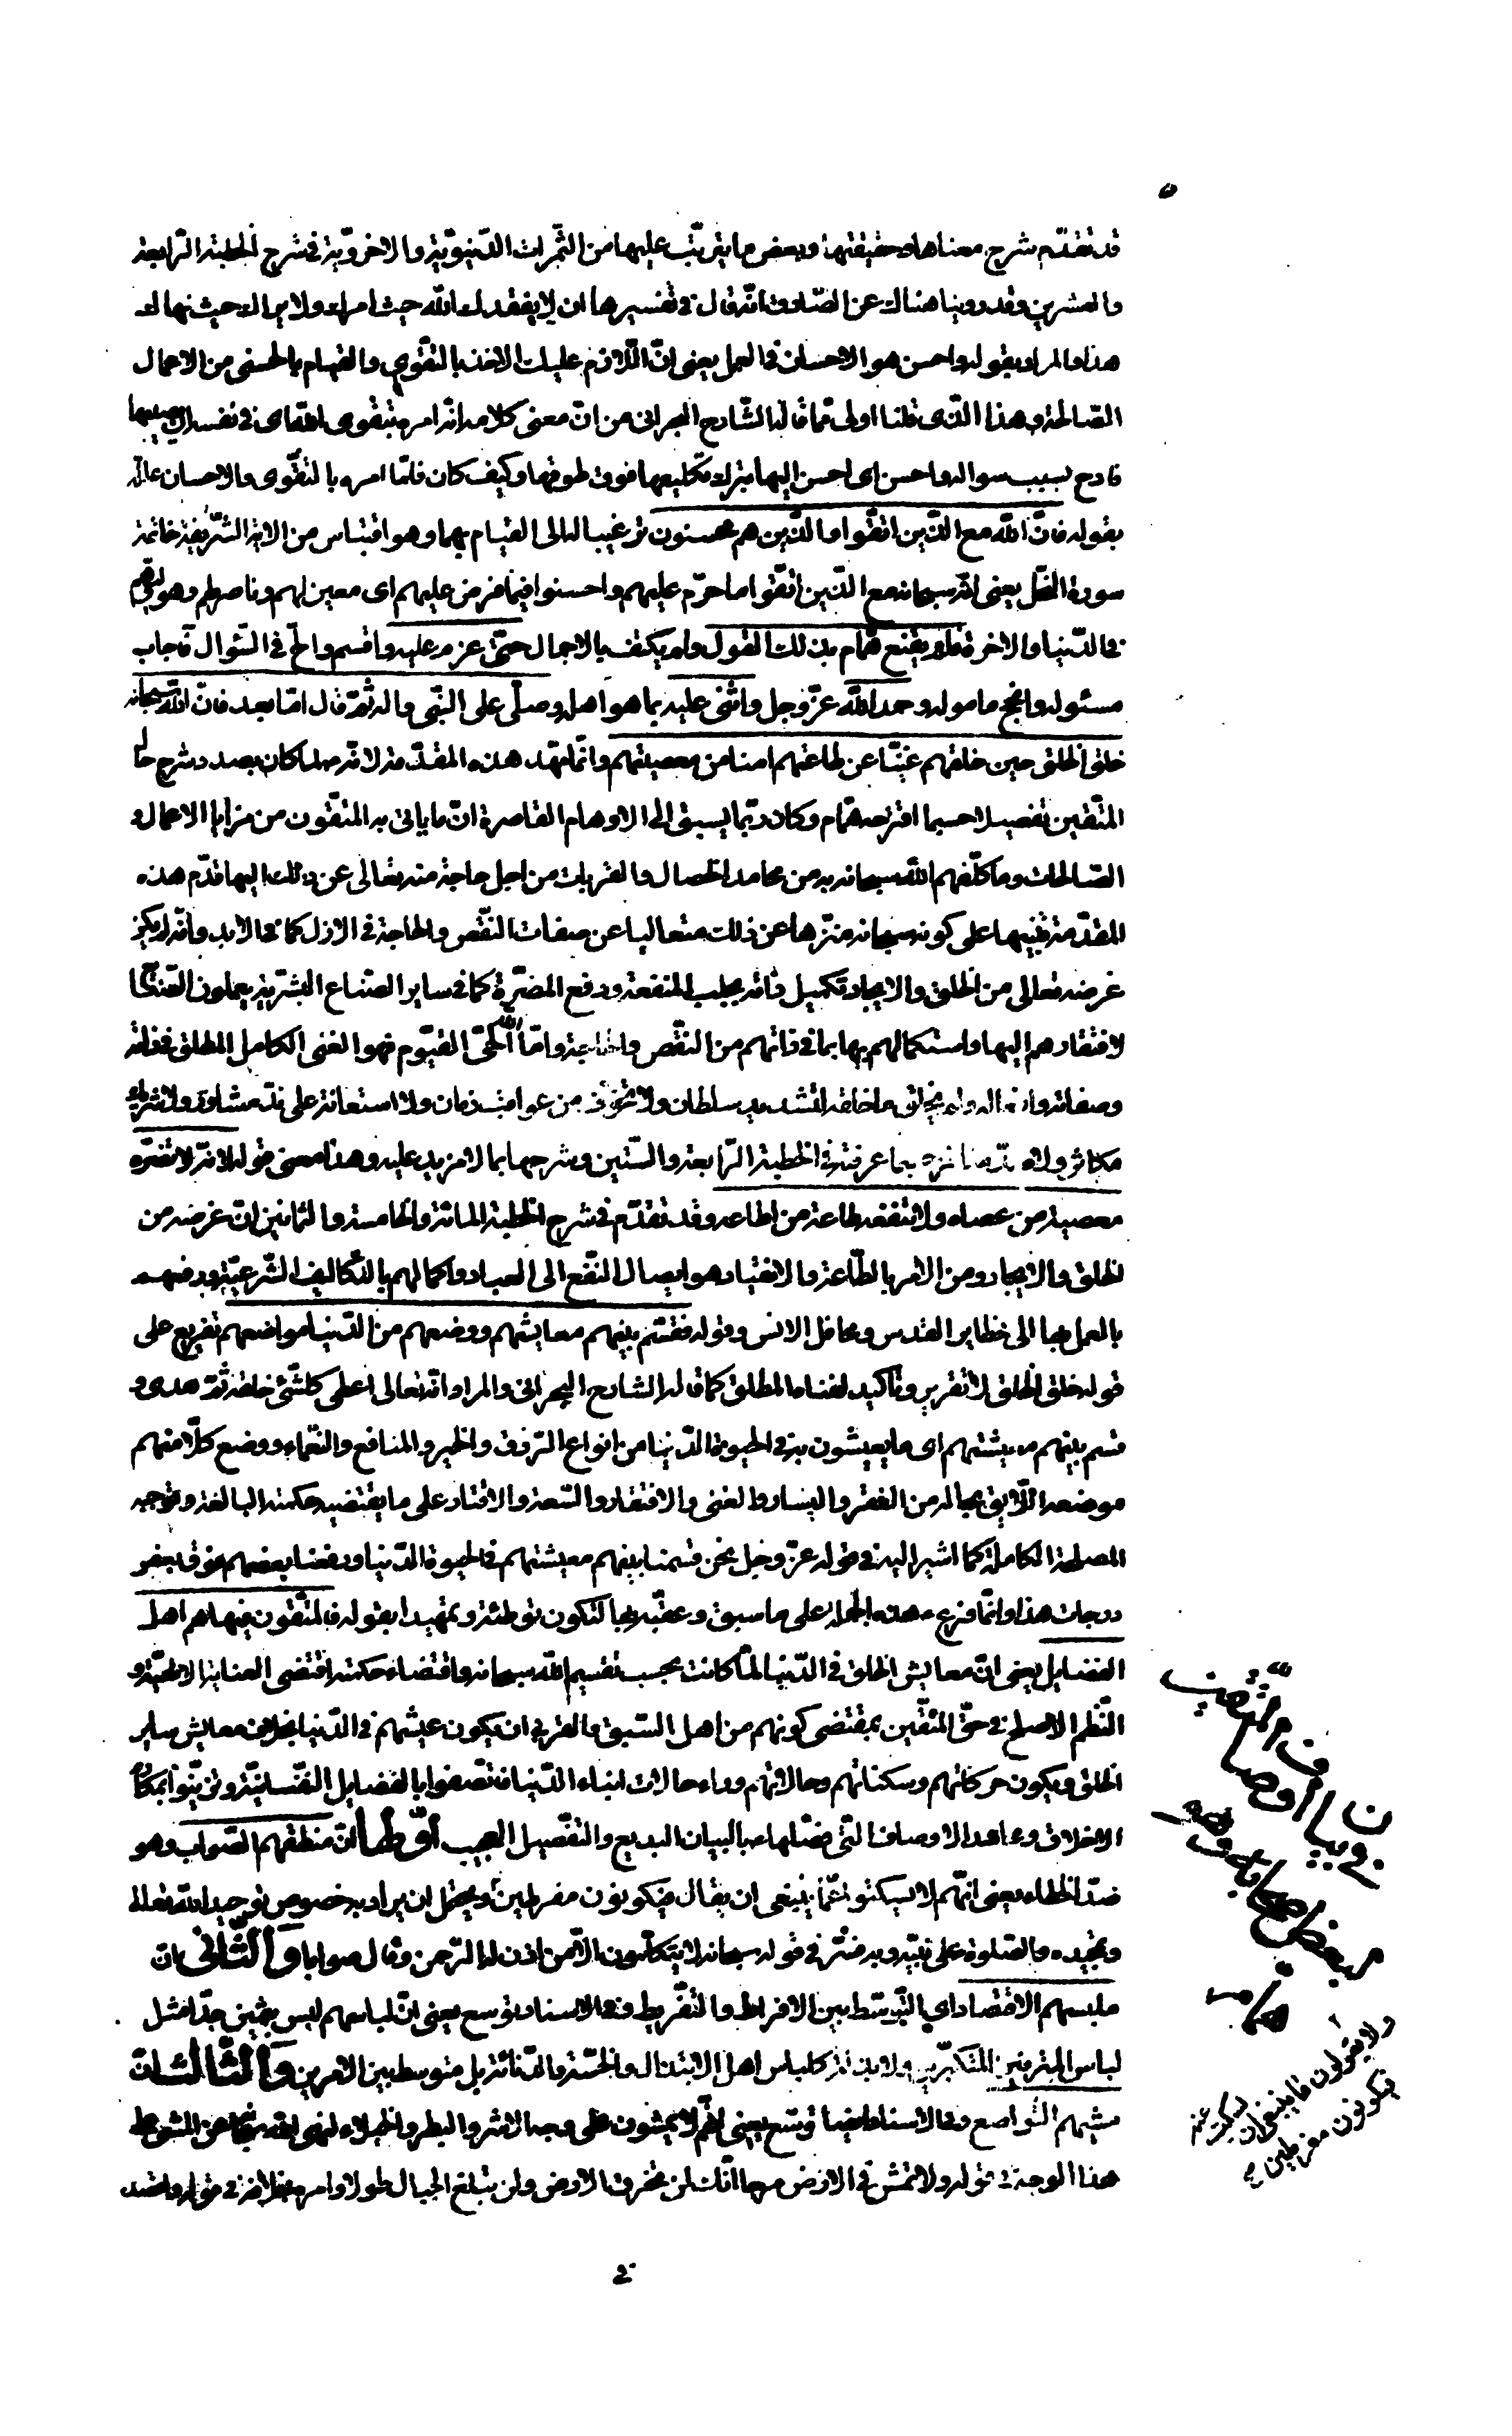 قد تقدّم شرح معناها وحقيقتها وبعض ما يترتّب عليها من الثّمرات الدّنيويّة والاخرويّة فى شرح الخطبة الرّابعة
والعشرين وقد روينا هناك عن الصّادق انّه قال فى تفسيرها ان لا يفقدك الله حيث امرك ولا يراك حيث نهاك
هذا والمراد بقوله واحسن هو الاحسان فى العمل يعنى انّ اللّازم عليك الاخذ بالتّقوى والقيام بالحسنى من الاعمال
الصّالحة وهذا الّذى قلنا اولى ممّا قاله الشّارح البحرانى من انّ معنى كلامه انّه امره بتقوى الله اى فى نفسه ان يصيبها
فادح بسبب سواله واحسن اى احسن اليها بترك تكليفها فوق طوقها وكيف كان فلمّا امره بالتّقوى والاحسان علّله
بقوله فانّ الله مع الّذين اتّقوا والّذين هم محسنون ترغيبا له الى القيام بهما وهو اقتباس من الاية الشّريفة خاتمة
سورة النّحل يعنى انّه سبحانه مع الّذين اتّقوا ما حرّم عليهم واحسنوا فيما فرض عليهم اى معين لهم وناصرهم وهو وليّهم
فى الدّنيا والاخرة فلم يقنع همّام بذلك القول ولم يكتف بالاجمال حتّى عزم عليه واقسم والحّ فى السّؤال فاجاب
مسئوله وانجح مأموله وحمد الله عزّ وجل واثنى عليه بما هو اهله وصلّى على النّبى واله ثمّ قال امّا بعد فانّ الله سبحانه
خلق الخلق حين خلقهم غنيّا عن طاعتهم امنا من معصيتهم وانّما مهّد هذه المقدّمة لانّه لمّا كان بصدد شرح حال
المتّقين تفصيلا حسبما اقترحه همّام وكان ربّما يسبق الى الاوهام القاصرة انّ ما ياتى به المتّقون من مزايا الاعمال و
الصّالحات وما كلّفهم الله سبحانه به من محامد الخصال والقربات من اجل حاجة منه تعالى عن ذلك اليها قدّم هذه
المقدّمة تنبيها على كونه سبحانه منزّها عن ذلك متعاليا عن صفات النّقص والحاجة فى الازل كما فى الابد وانّه لم يكن
غرضه تعالى من الخلق والايجاد تكميل ذاته بجلب المنفعة ودفع المضرّة كما فى ساير الصنّاع البشريّة يعملون الصّنايع
لافتقارهم اليها واستكمالهم بها بما فى ذاتهم من النّقص والحاجة وامّا الله الحىّ القيّوم فهو الغنى الكامل المطلق فى ذاته
وصفاته وافعاله ولم يخلق ما خلقه لتشديد سلطان ولا تخوّف من عواقب زمان ولا استعانة على ندّ مشاور ولا شريك
مكاثر ولا ضدّ منافر بما عرفته فى الخطبة الرّابعة والستّين وشرحها بما لا مزيد عليه وهذا معنى قوله لانّه لا تضرّه
معصية من عصاه ولا تنفعه طاعة من اطاعه وقد تقدّم فى شرح الخطبة المائة والخامسة والثمانين انّ غرضه من
الخلق والايجاد ومن الامر بالطّاعة والانقياد هو ايصال النّفع الى العباد واكمالهم بالتّكاليف الشّرعيّة ورفعهم
بالعمل بها الى خطاير القدس ومحافل الانس وقوله فقسّم بينهم معايشهم ووضعهم من الدّنيا مواضعهم تفريع على
قوله خلق الخلق لا تقرير وتأكيد لغناه المطلق كما قاله الشارح البحرانى والمراد انّه تعالى اعطى كلّ شئ خلقه ثمّ هدى و
قسم بينهم معيشتهم اى ما يعيشون به فى الحيوة الدّنيا من انواع الرّزق والخير والمنافع والنّعماء ووضع كلّا منهم
موضعه اللّايق بحاله من الفقر واليسار والغنى والافتقار والسّعة والاقتار على ما يقتضيه حكمته البالغة وتوجبه
المصلحة الكاملة كما اشير اليه فى قوله عزّ وجل نحن قسمنا بينهم معيشتهم فى الحيوة الدّنيا ورفعنا بعضهم فوق بعض
درجات هذا وانّما فرع هذه الجملة على ما سبق وعقّبه بها لتكون توطئة وتمهيدا بقوله فالمتّقون فيها هم اهل
الفضايل يعنى انّ معايش الخلق فى الدّنيا لمّا كانت بحسب تقسيم الله سبحانه واقتضاء حكمته اقتضى العناية الالهيّة و
النّظم الاصلح فى حقّ المتّقين بمقتضى كونهم من اهل السّبق والقربى ان يكون عيشهم فى الدّنيا بخلاف معايش ساير
الخلق ويكون حركاتهم وسكناتهم وحالاتهم وراء حالات ابناء الدّنيا فاتّصفوا بالفضايل النّفسانيّة وتزيّنوا بمكارم
الاخلاق ومحامد الاوصاف الّتى فصّلها بالبيان البديع والتّفصيل العجيب اوّلها انّ منطقهم الصّواب وهو
ضدّ الخطاء يعنى انّهم لا يسكتون عمّا ينبغى ان يقال فيكونون مفرطين ويحتمل ان يراد به خصوص توحيد الله تعالى
وتمجيده والصّلوة على نبيّه وبه فسّر فى قوله سبحانه لا يتكلّمون الّا من اذن له الرّحمن وقال صوابا والثّانى انّ
ملبسهم الاقتصاد اى التّوسّط بين الافراط والتّفريط وفى الاسناد توسع يعنى انّ لباسهم ليس بثمين جدّا مثل
لباس المترفين المتكبّرين ولا كلباس اهل الابتذال والخسّة والدّنائة بل متوسط بين الامرين والثّالث انّ
مشيهم التّواضع وفى الاسناد ايضا توسّع يعنى انّهم لا يمشون على وجه الاشر والبطر والخيلاء لنهى الله سبحانه عن المشى على
هذا الوجه فى قوله ولا تمش فى الارض مرحا انّك لن تخرق الارض ولن تبلغ الجبال طولا وامره بخلافه فى قوله واقصد
فى
فى بيان اوصاف المتّقين
لبعض اصحابه
همّام
ولا يقولون ما ينبغى ان يسكت عنه
فيكونون مفرطين